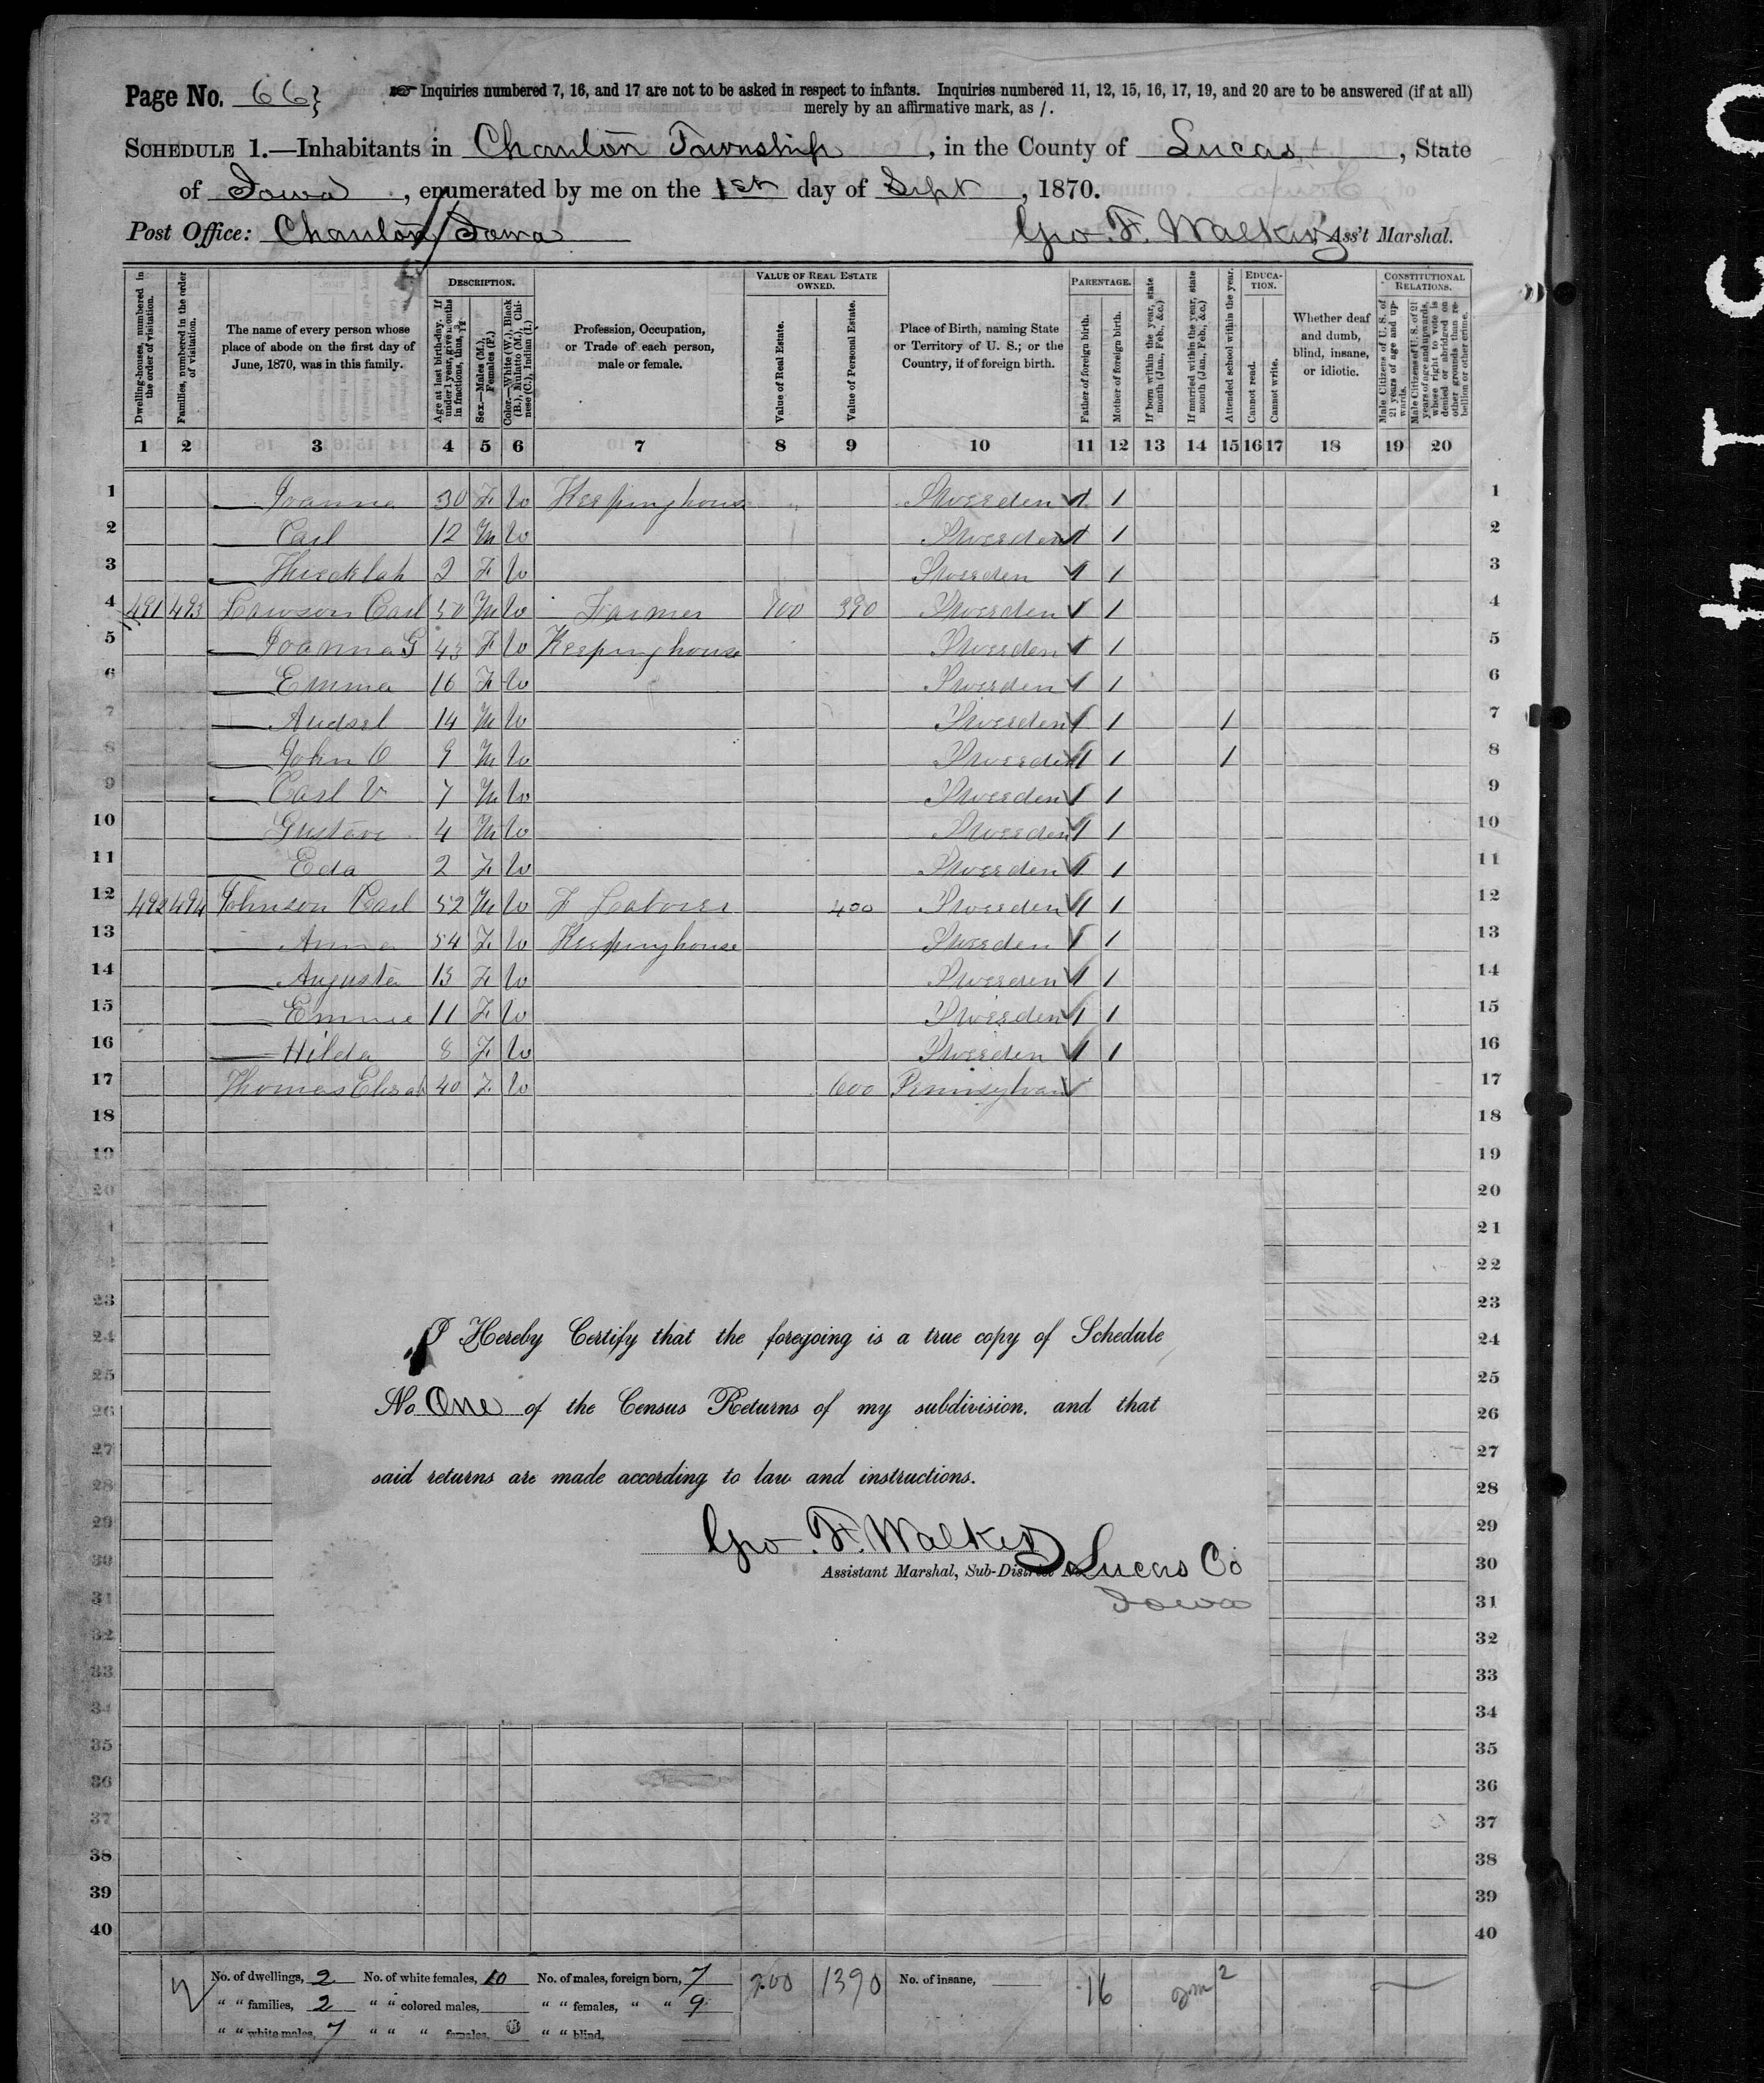 Page No. 66}
Inquiries numbered 7, 16, and 17 are not to be asked in respect to infants. Inquiries numbered 11, 12, 15, 16, 17, 19, and 20 are to be answered (if at all)
merely by an affirmative mark, as /.
SCHEDULE 1.—Inhabitants in Chariton Township, in the County of Lucas, State
of Iowa, enumerated by me on the 1st day of Sept, 1870.
Post Office: Chariton/Iowa Geo. F. Walker, Ass't Marshal.
Dwelling-houses, numbered in the order of visitation.
Families, numbered in the order of visitation.
The name of every person whose place of abode on the first day of June, 1870, was in this family.
DESCRIPTION.
Age at last birth-day. If under 1 year, give months in fractions, thus, 3/12
Sex.—Males (M.), Females (F.)
Color.—White (W.), Black (B.), Mulatto (M.), Chinese (C.), Indian (I.)
Profession, Occupation, or Trade of each person, male or female.
VALUE OF REAL ESTATE OWNED.
Value of Real Estate.
Value of Personal Estate.
Place of Birth, naming State or Territory of U. S.; or the Country, if of foreign birth.
PARENTAGE.
Father of foreign birth.
Mother of foreign birth.
If born within the year, state month (Jan., Feb., &c.)
If married within the year, state month (Jan., Feb., &c.)
Attended school within the year.
EDUCATION.
Cannot read.
Cannot write.
Whether deaf and dumb, blind, insane, or idiotic.
CONSTITUTIONAL RELATIONS.
Male Citizens of U. S. of 21 years of age and upwards.
Male Citizens of U. S. of 21 years of age and upwards, whose right to vote is denied or abridged on other grounds than rebellion or other crime.
1 2 3 4 5 6 7 8 9 10 11 12 13 14 15 16 17 18 19 20
1 — Joanna 30 F W Keeping house Sweden 1 1 1
2 — Carl 12 M W Sweden 1 1 2
3 — 2 F W Sweden 1 1 3
4 491 493 Lawson Carl 50 M W Farmer 700 390 Sweden 1 1 4
5 — Joanna G 43 F W Keeping house Sweden 1 1 5
6 — Emma 16 F W Sweden 1 1 6
7 — 14 M W Sweden 1 1 1 7
8 — John O 9 M W Sweden 1 1 1 8
9 — Carl V 7 M W Sweden 1 1 9
10 — Gustave 4 M W Sweden 1 1 10
11 — Eda 2 F W Sweden 1 1 11
12 492 494 Johnson Carl 52 M W F Laborer 400 Sweden 1 1 12
13 — Anna 54 F W Keeping house Sweden 1 1 13
14 — Augusta 13 F W Sweden 1 1 14
15 — Emma 11 F W Sweden 1 1 15
16 — Hilda 8 F W Sweden 1 1 16
17 Thomas Elizab 40 F W 600 Pennsylvan 17
18 18
19 19
20 20
21
22
23 23
24 24
25 25
26 26
27 27
28 28
29 29
30 30
31 31
32 32
33 33
34 34
35 35
36 36
37 37
38 38
39 39
40 40
I Hereby Certify that the foregoing is a true copy of Schedule
No One of the Census Returns of my subdivision, and that
said returns are made according to law and instructions.
Geo. F. Walker
Assistant Marshal, Sub-District Lucas Co
Iowa
No. of dwellings, 2 No. of white females, 10 No. of males, foreign born, 7 700 1390 No. of insane, 16 2
" " families, 2 " " colored males, " " females, " " 9
" " white males, 7 " " " females, " " blind,